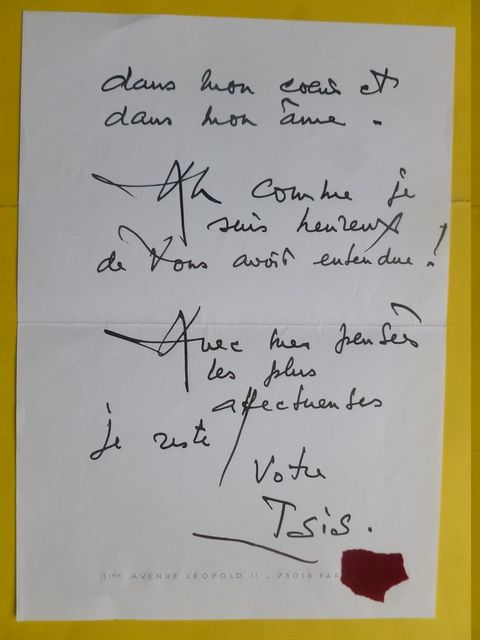 dans mon coeur et
dans mon âme.
Ah comme je
suis heureux
de Vous avoir entendue !
Avec mes pensées
les plus
affectueuses
je reste
Votre
Tsis.
11BIS, AVENUE LÉOPOLD II _ 75016 PAR